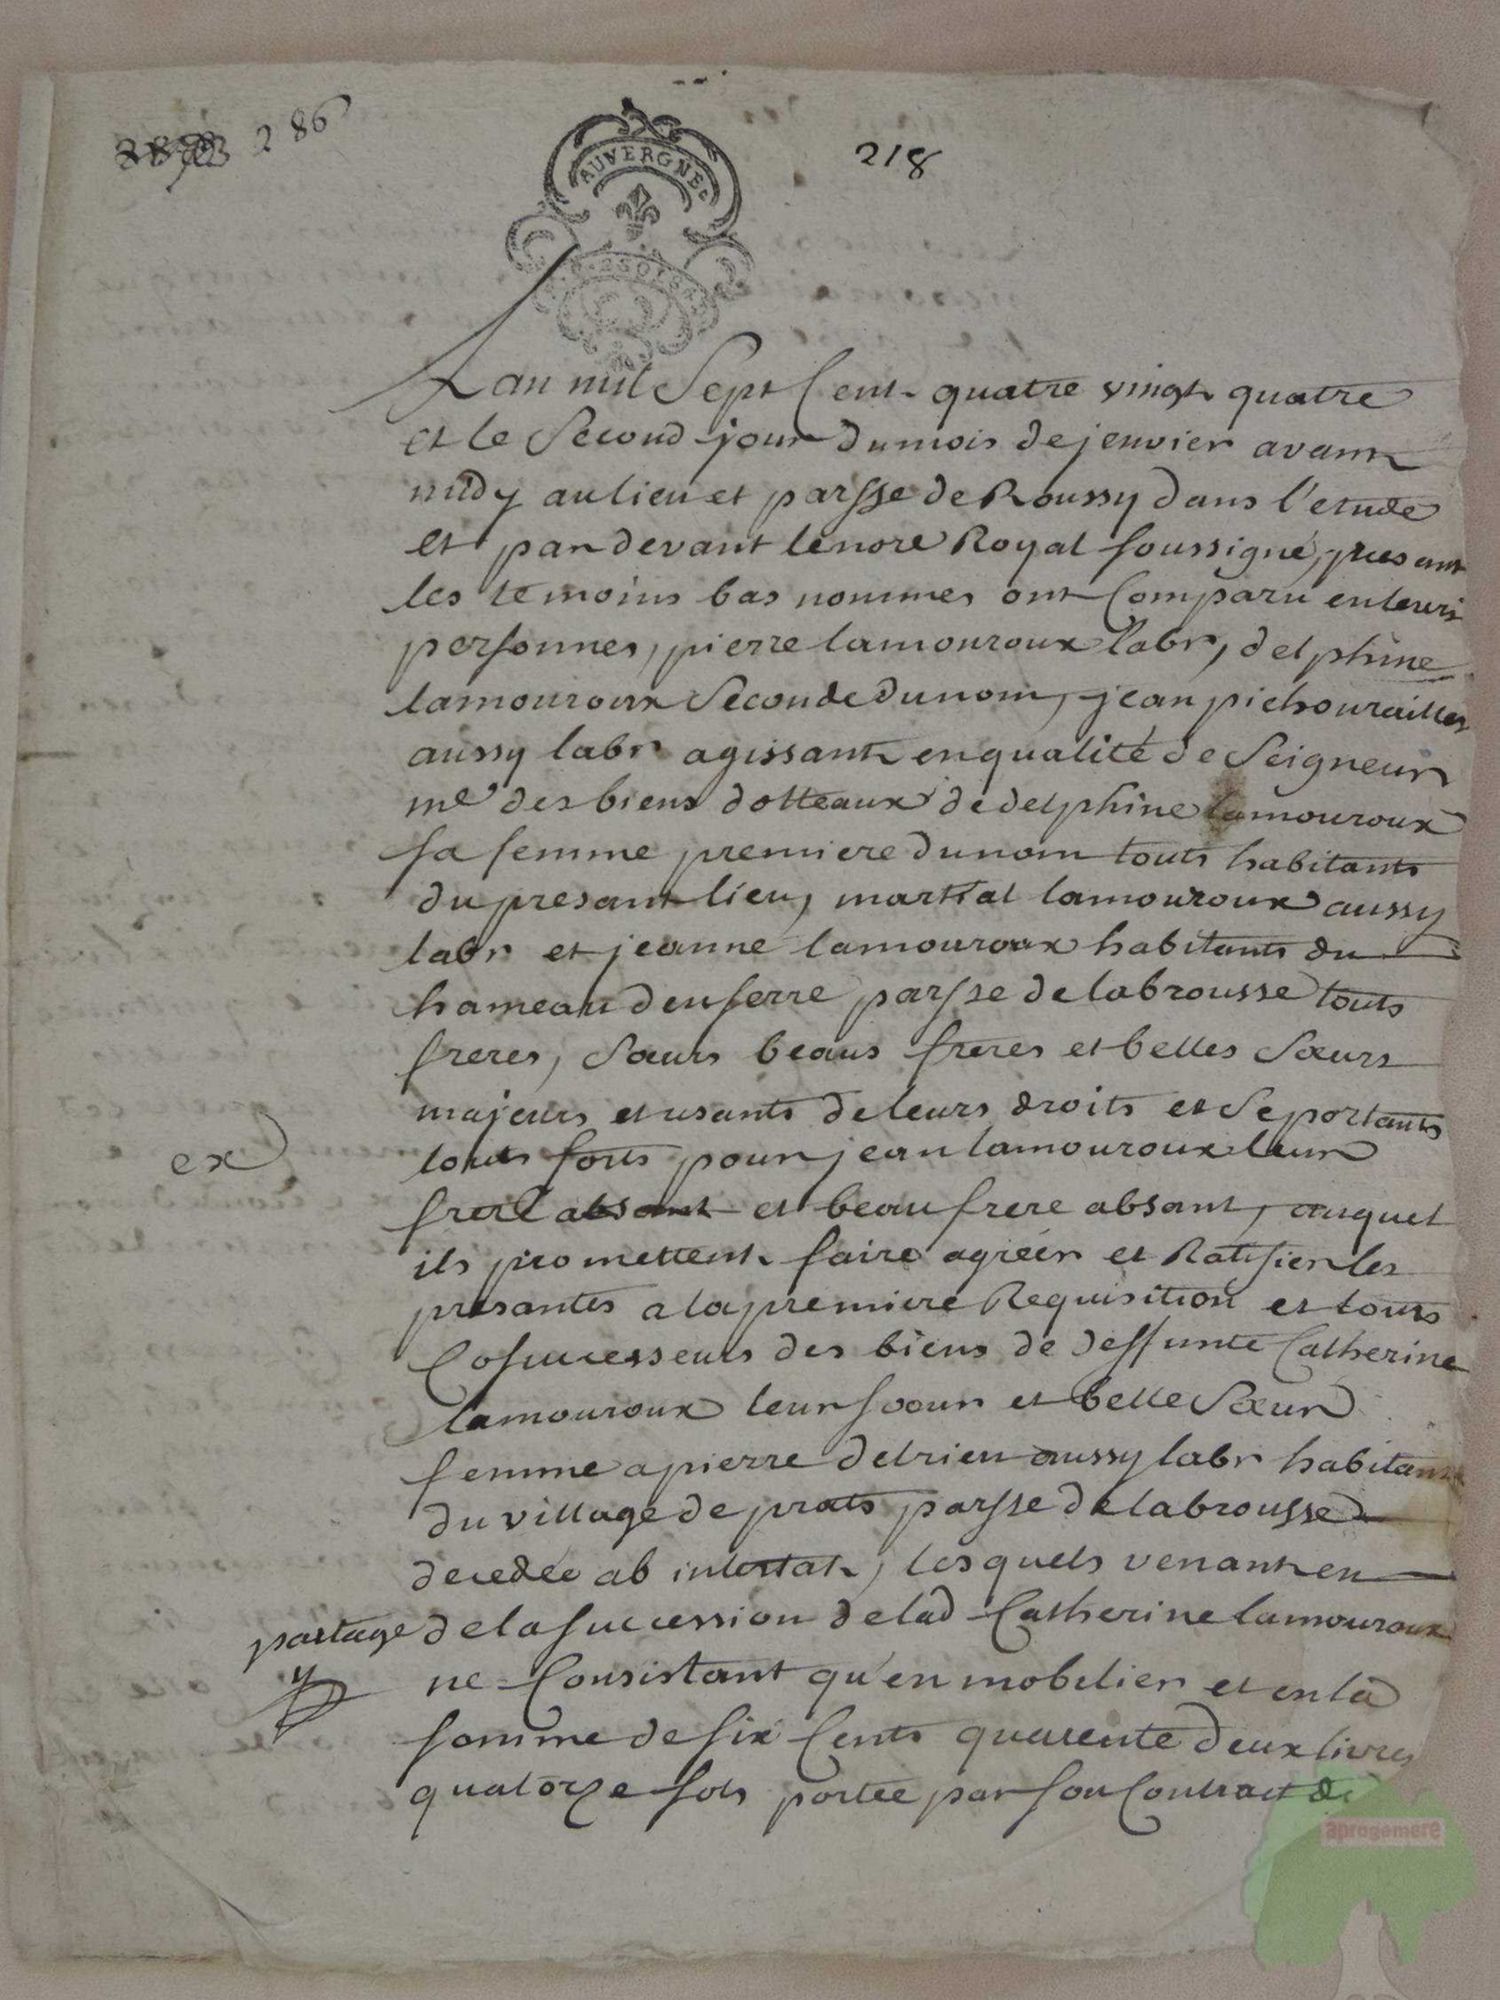 286
218
AUVERGNE
Lan mil Sept Cent quatre vingt quatre
et le Second jour du mois de jenvier avant
midy au lieu et parsse de Roussy dans l'etude
et par devant le nore Royal soussigné, presant
les temoins bas nommes ont Comparu en leurs
personnes, pierre lamouroux labr, delphine
lamouroux Seconde du nom, jean pichourailles
aussy labr agissant en qualité de Seigneur
me des biens dotteaux de delphine lamouroux
sa femme premiere du nom touts habitants
du presant lieu, martial lamouroux aussy
labr et jeanne lamouroux habitants du
hameau denserre parsse de labrousse touts
freres, Sœurs beaus freres et belles Sœurs
majeurs et usants de leurs droits et Se portants
ex
touts forts pour jean lamouroux leur
frere absant et beau frere absant, auquel
ils promettent faire agréér et Ratifier les
presantes a la premiere Requisition et touts
Cosuccesseurs des biens de deffunte Catherine
lamouroux leur soour et belle Sœur
femme a pierre delrieu aussy labr habitant
du village de prats parsse de labrousse
decedée ab intestat, lesquels venant en
partage de la succession de lad Catherine lamouroux
ne Consistant qu'en mobilier et en la
somme de six Cents quarente deux livres
quatorze sols portée par son Contract de
aprogemere